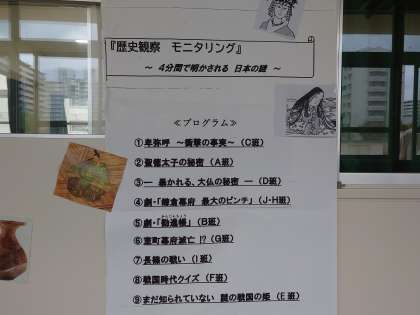 『歴史観察 モニタリング』
～ 4分間で明かされる 日本の謎 ～
≪プログラム≫
①卑弥呼 ～衝撃の事実～ (C班)
②聖徳太子の秘密 (A班)
③― 暴かれる、大仏の秘密 ― (D班)
④劇・「鎌倉幕府 最大のピンチ」(J・H班)
⑤劇・「勧進帳」(B班)
⑥室町幕府滅亡 !? (G班)
⑦長篠の戦い (I班)
⑧戦国時代クイズ (F班)
⑨まだ知られていない 謎の戦国の姫 (E班)